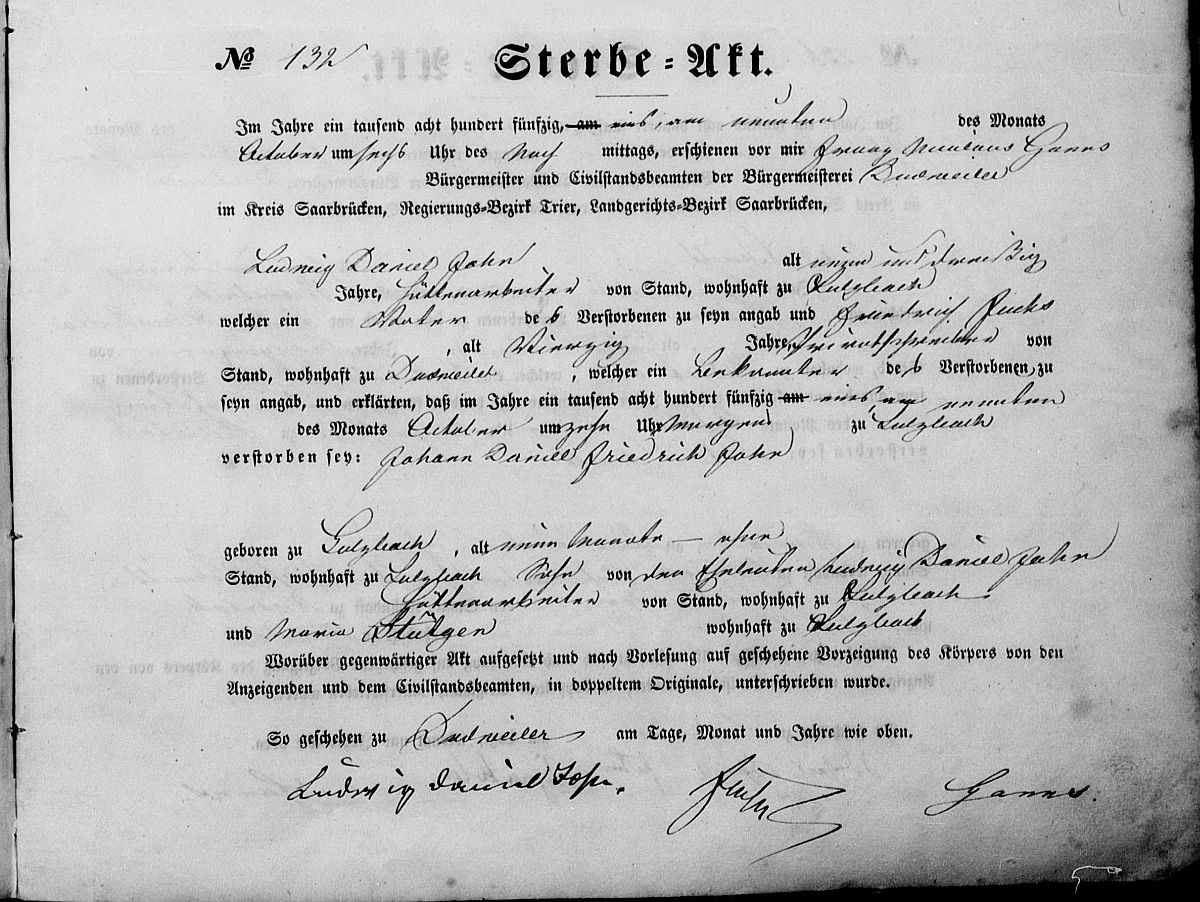 № 132
Sterbe-Akt.
Im Jahre ein tausend acht hundert fünfzig, am eins, am neunten des Monats
October um sechs Uhr des Nach mittags, erschienen vor mir Franz Nicolaus Hanns
Bürgermeister und Civilstandsbeamten der Bürgermeisterei Dudweiler
im Kreis Saarbrücken, Regierungs-Bezirk Trier, Landgerichts-Bezirk Saarbrücken,
Ludwig Daniel John alt neun und dreißig
Jahre, Hüttenarbeiter von Stand, wohnhaft zu Sulzbach
welcher ein Vater des Verstorbenen zu seyn angab und Friedrich Fuchs
, alt Vierzig Jahre, Privatschreiber von
Stand, wohnhaft zu Dudweiler, welcher ein Bekannter des Verstorbenen zu
seyn angab, und erklärten, daß im Jahre ein tausend acht hundert fünfzig am eins, am neunten
des Monats October um zehn Uhr Morgens zu Sulzbach
verstorben sey: Johann Daniel Friedrich John
geboren zu Sulzbach, alt neun Monate — ohne
Stand, wohnhaft zu Sulzbach Sohn von den Eheleuten Ludwig Daniel John
Hüttenarbeiter von Stand, wohnhaft zu Sulzbach
und Maria Stütgen wohnhaft zu Sulzbach
Worüber gegenwärtiger Akt aufgesetzt und nach Vorlesung auf geschehene Vorzeigung des Körpers von den
Anzeigenden und dem Civilstandsbeamten, in doppeltem Originale, unterschrieben wurde.
So geschehen zu Dudweiler am Tage, Monat und Jahre wie oben.
Ludwig Daniel John. Fuchs Hanns.